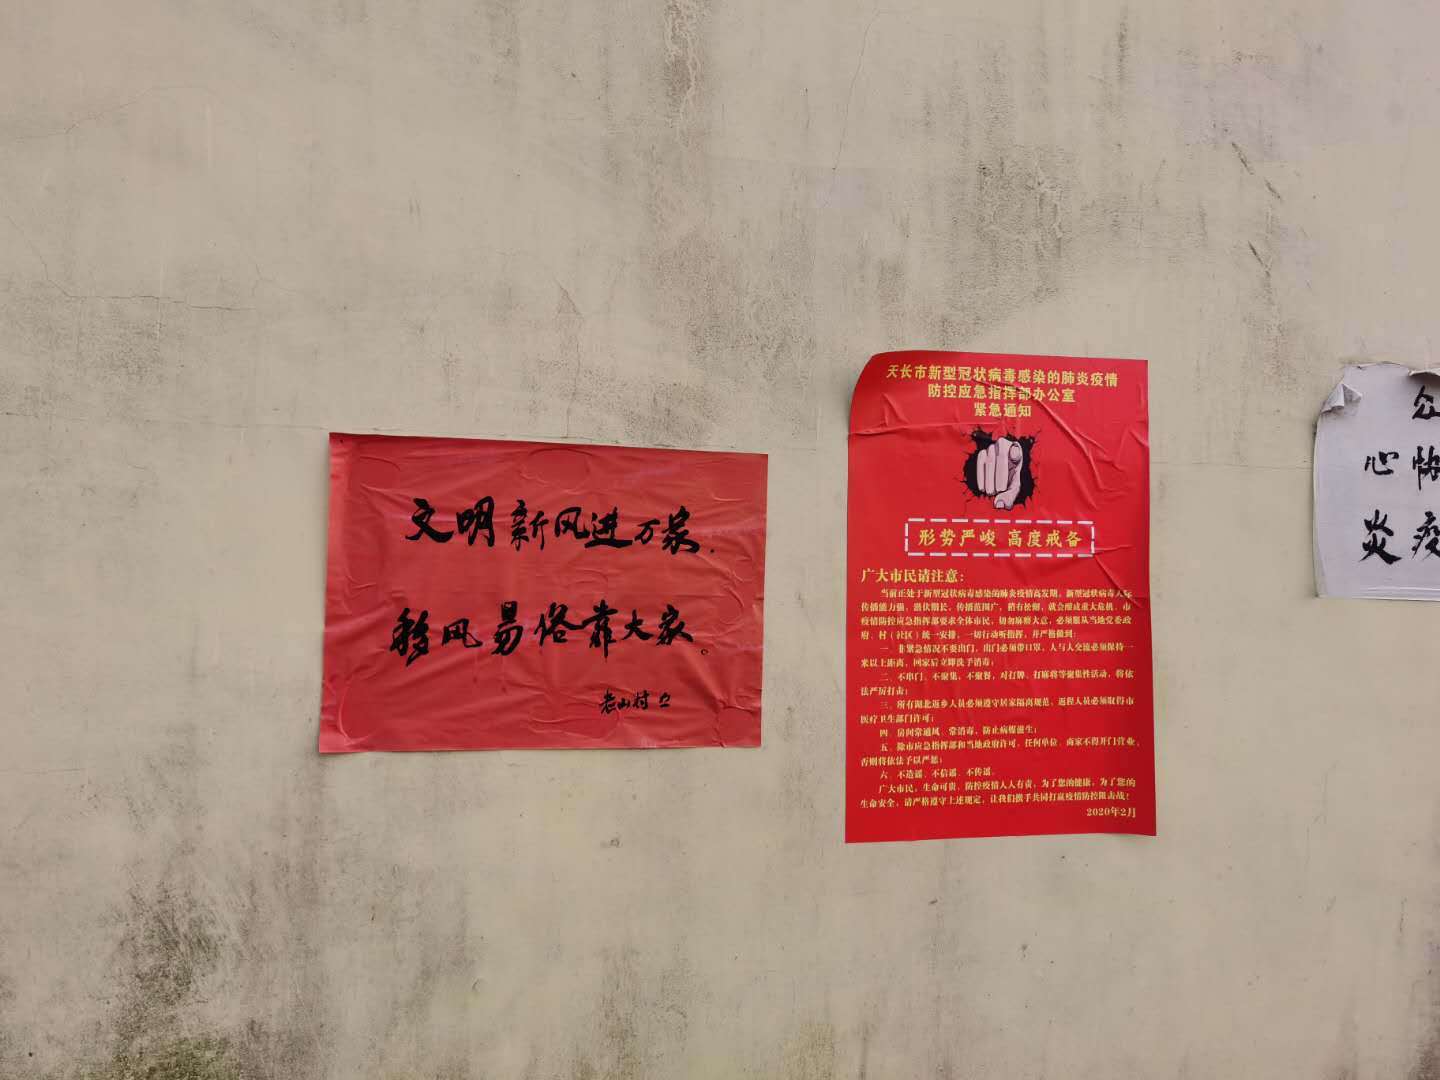 文明新风进万家.
移风易俗靠大家。
老山村
天长市新型冠状病毒感染的肺炎疫情
防控应急指挥部办公室
紧急通知
形势严峻 高度戒备
广大市民请注意：
当前正处于新型冠状病毒感染的肺炎疫情高发期，新型冠状病毒人际
传播能力强，潜伏期长，传播范围广，稍有松懈，就会酿成重大危机。市
疫情防控应急指挥部要求全体市民，切勿麻痹大意，必须服从当地党委政
府、村（社区）统一安排，一切行动听指挥，并严格做到：
一、非紧急情况不要出门，出门必须带口罩，人与人交流必须保持一
米以上距离，回家后立即洗手消毒；
二、不串门、不聚集、不聚餐，对打牌、打麻将等聚集性活动，将依
法严厉打击；
三、所有湖北返乡人员必须遵守居家隔离规范，返程人员必须取得市
医疗卫生部门许可；
四、房间常通风、常消毒，防止病媒滋生；
五、除市应急指挥部和当地政府许可，任何单位、商家不得开门营业，
否则将依法予以严惩；
六、不造谣、不信谣、不传谣。
广大市民，生命可贵，防控疫情人人有责，为了您的健康，为了您的
生命安全，请严格遵守上述规定，让我们携手共同打赢疫情防控阻击战！
2020年2月
众
心
炎 疫